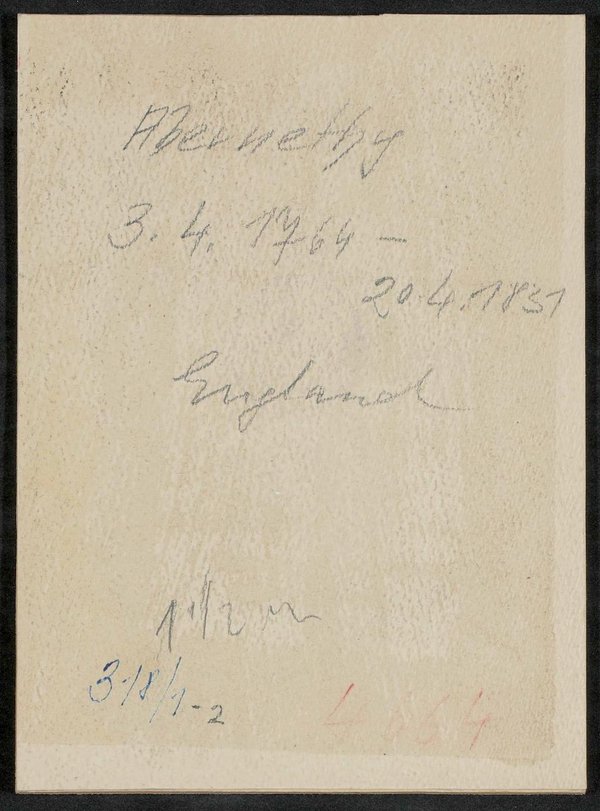 Abernethy
3. 4. 1764 –
20.4.1831
England
318/1-2
4064